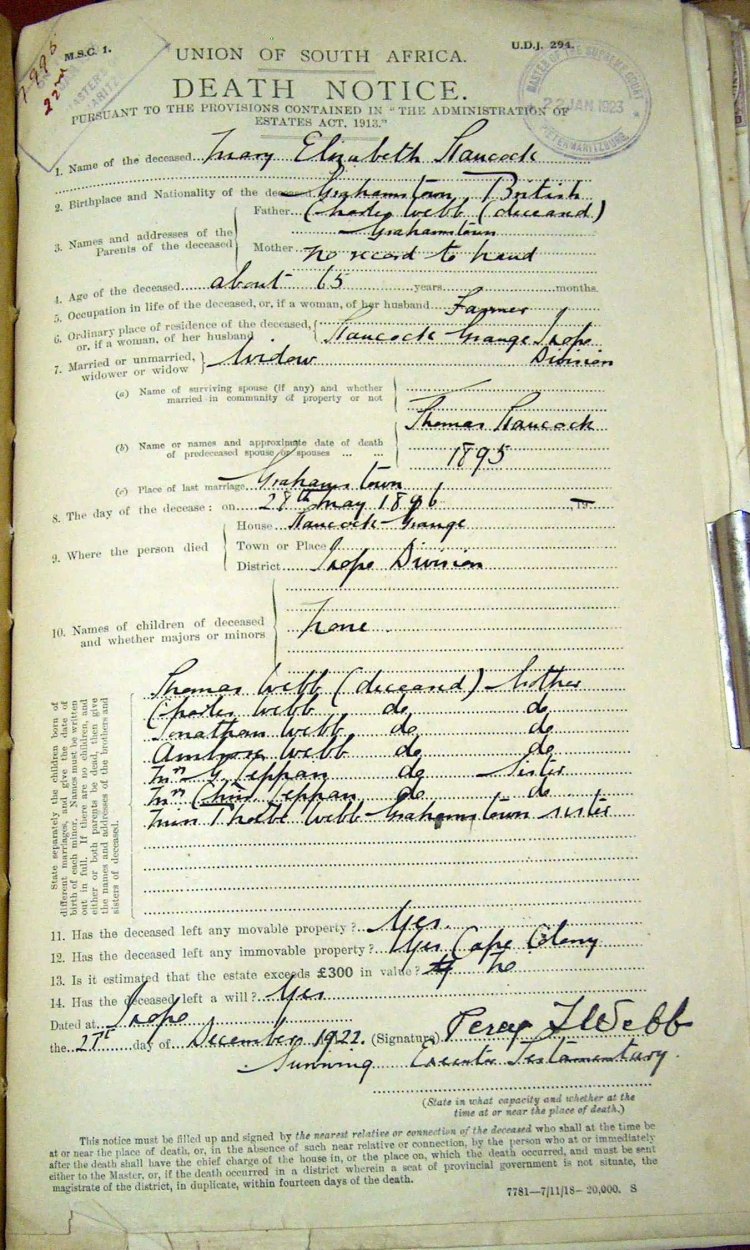 M.S.C. 1.
U.D.J. 294.
22nd
MASTER OF THE SUPREME COURT
22 JAN 1923
PIETERMARITZBURG
UNION OF SOUTH AFRICA.
DEATH NOTICE.
PURSUANT TO THE PROVISIONS CONTAINED IN "THE ADMINISTRATION OF
ESTATES ACT, 1913."
1. Name of the deceased Mary Elizabeth Hancock
2. Birthplace and Nationality of the deceased Grahamstown British
3. Names and addresses of the Parents of the deceased
Father Charles Webb (deceased)
Grahamstown
Mother No record to hand
4. Age of the deceased about 65 years months.
5. Occupation in life of the deceased, or, if a woman, of her husband Farmer
6. Ordinary place of residence of the deceased, or, if a woman, of her husband Hancock Grange Ixopo
Division
7. Married or unmarried, widower or widow Widow
(a) Name of surviving spouse (if any) and whether
married in community of property or not
(b) Name or names and approximate date of death
of predeceased spouse or spouses ... ...
Thomas Hancock
1895
(c) Place of last marriage Grahamstown
8. The day of the decease: on 28th May 1896, 19
9. Where the person died
House Hancock Grange
Town or Place
District Ixopo Division
10. Names of children of deceased
and whether majors or minors
None
State separately the children born of
different marriages, and give the date of
birth of each minor. Names must be written
out in full. If there are no children, and
either or both parents be dead, then give
the names and addresses of the brothers and
sisters of deceased.
Thomas Webb (deceased) brother
Charles Webb do do
Jonathan Webb do do
Ambrose Webb do do
Mrs G Teppan do Sister
Mrs Chas Teppan do do
Miss Phoebe Webb Grahamstown sister
11. Has the deceased left any movable property? Yes.
12. Has the deceased left any immovable property? Yes Cape Colony
13. Is it estimated that the estate exceeds £300 in value? No
14. Has the deceased left a will? Yes
Dated at Ixopo
the 27th day of December 1922. (Signature) Percy Webb
Surviving Executor Testamentary.
(State in what capacity and whether at the
time at or near the place of death.)
This notice must be filled up and signed by the nearest relative or connection of the deceased who shall at the time be
at or near the place of death, or, in the absence of such near relative or connection, by the person who at or immediately
after the death shall have the chief charge of the house in, or the place on, which the death occurred, and must be sent
either to the Master, or, if the death occurred in a district wherein a seat of provincial government is not situate, the
magistrate of the district, in duplicate, within fourteen days of the death.
7781—7/11/18—20,000. S